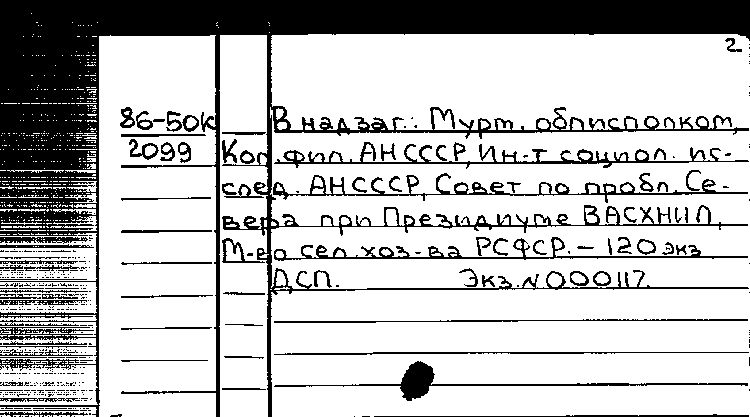 2
86-50к В надзаг.: Мурм. облисполком,
2099 Кол. фил. АН СССР, Ин-т социол. ис-
след. АН СССР, Совет по пробл. Се-
вера при Президиуме ВАСХНИЛ,
М-во сел. хоз-ва РСФСР. – 120 экз
ДСП. Экз. № 000117.